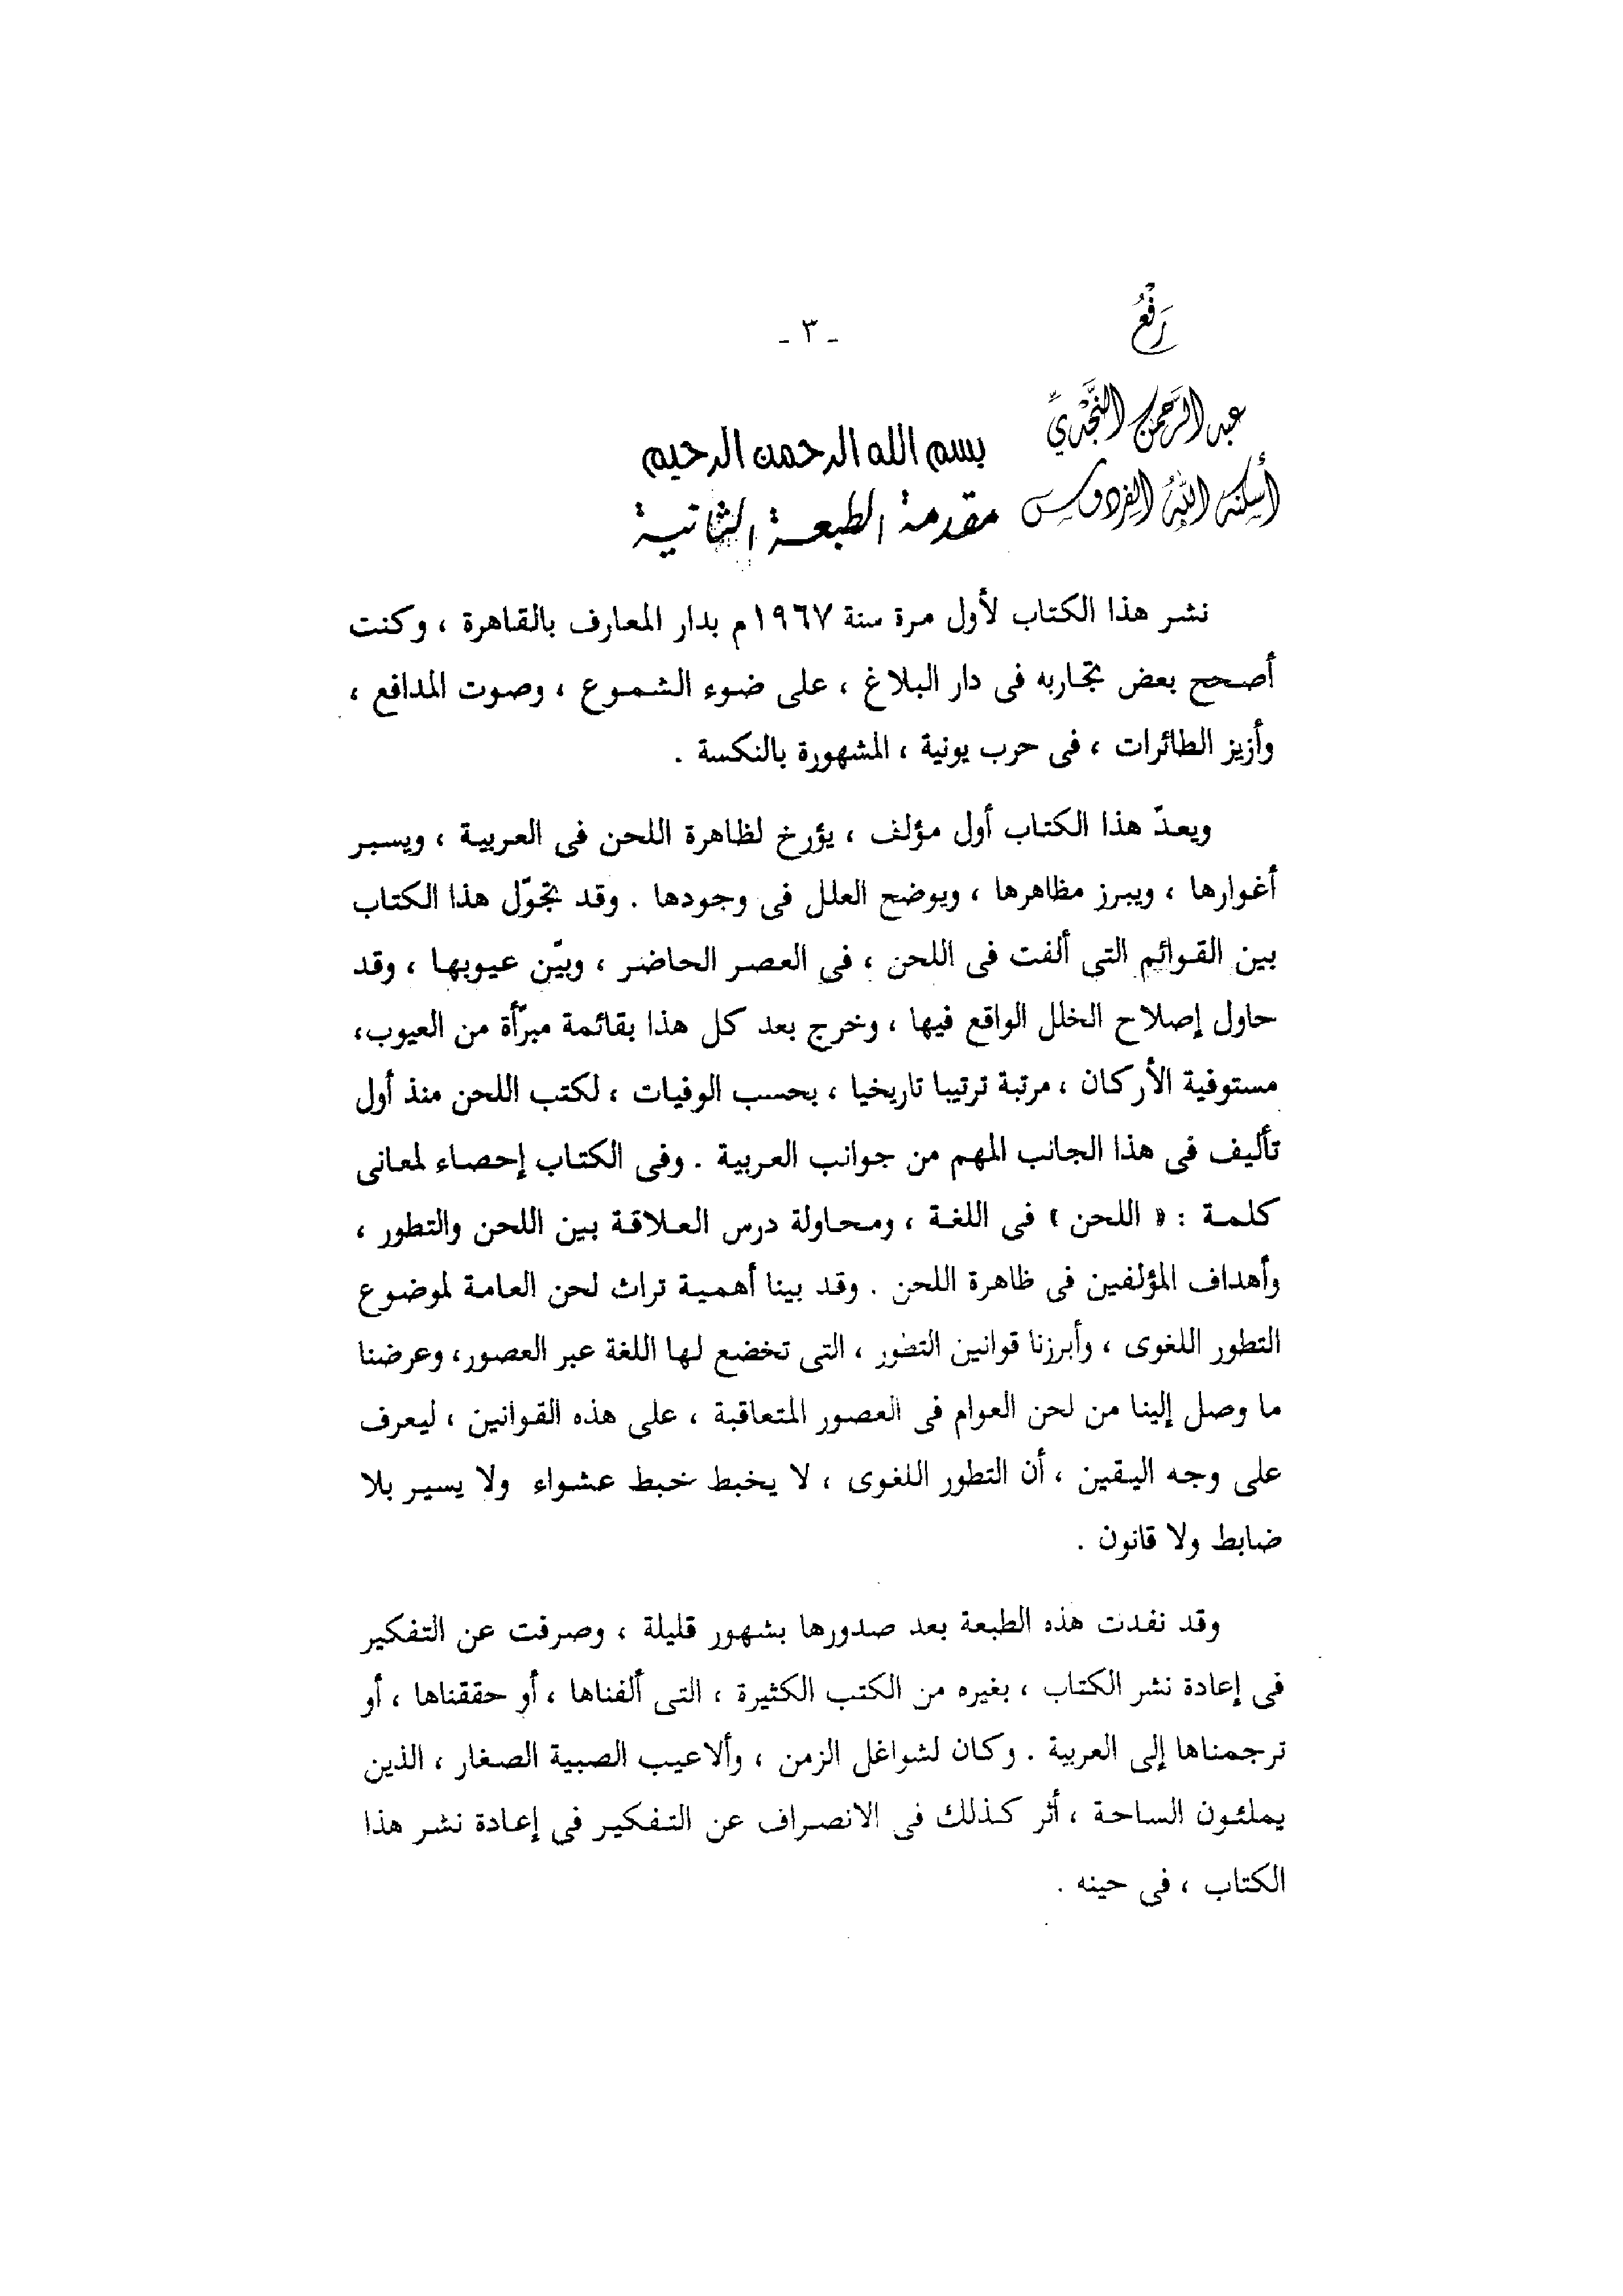 - ٣ -
رَفْعُ
عبد الرَّحمن النَّجْديِّ
أسكنه اللهُ الفردوس
بسم الله الرحمن الرحيم
مقدمة الطبعة الثانية
نشر هذا الكتاب لأول مرة سنة ١٩٦٧م بدار المعارف بالقاهرة ، وكنت
أصحح بعض تجاربه فى دار البلاغ ، على ضوء الشموع ، وصوت المدافع ،
وأزيز الطائرات ، فى حرب يونية ، المشهورة بالنكسة .
ويعدّ هذا الكتاب أول مؤلف ، يؤرخ لظاهرة اللحن فى العربية ، ويسبر
أغوارها ، ويبرز مظاهرها ، ويوضح العلل فى وجودها . وقد تجوّل هذا الكتاب
بين القوائم التى ألفت فى اللحن ، فى العصر الحاضر ، وبيّن عيوبها ، وقد
حاول إصلاح الخلل الواقع فيها ، وخرج بعد كل هذا بقائمة مبرّأة من العيوب،
مستوفية الأركان ، مرتبة ترتيبا تاريخيا ، بحسب الوفيات ، لكتب اللحن منذ أول
تأليف فى هذا الجانب المهم من جوانب العربية . وفى الكتاب إحصاء لمعانى
كلمة : « اللحن » فى اللغة ، ومحاولة درس العلاقة بين اللحن والتطور ،
وأهداف المؤلفين فى ظاهرة اللحن . وقد بينا أهمية تراث لحن العامة لموضوع
التطور اللغوى ، وأبرزنا قوانين التطور ، التى تخضع لها اللغة عبر العصور، وعرضنا
ما وصل إلينا من لحن العوام فى العصور المتعاقبة ، على هذه القوانين ، ليعرف
على وجه اليقين ، أن التطور اللغوى ، لا يخبط خبط عشواء ولا يسير بلا
ضابط ولا قانون .
وقد نفدت هذه الطبعة بعد صدورها بشهور قليلة ، وصرفت عن التفكير
فى إعادة نشر الكتاب ، بغيره من الكتب الكثيرة ، التى ألفناها ، أو حققناها ، أو
ترجمناها إلى العربية . وكان لشواغل الزمن ، وألاعيب الصبية الصغار ، الذين
يملئون الساحة ، أثر كذلك فى الانصراف عن التفكير فى إعادة نشر هذا
الكتاب ، فى حينه .